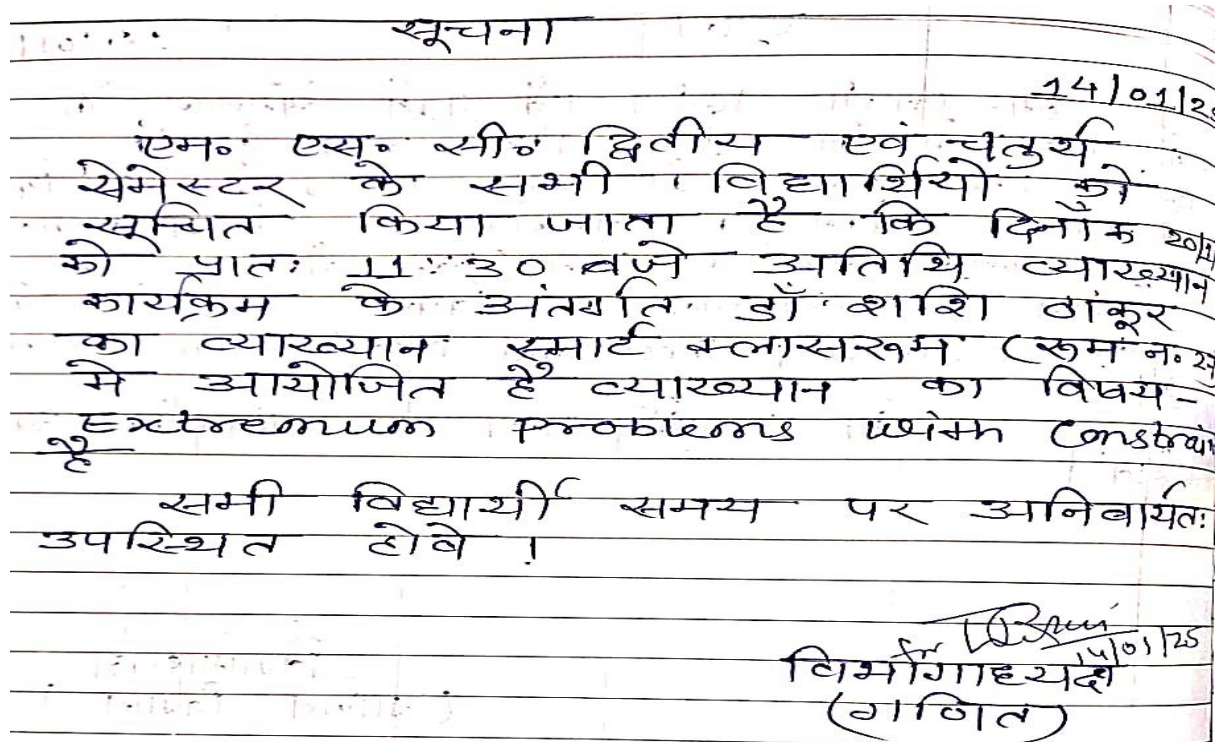 सूचना
14/01/2
एम० एस० सी० द्वितीय एवं चतुर्थ
सेमेस्टर के सभी विद्यार्थियो को
सूचित किया जाता है कि दिनाँक 20/1
को प्रातः 11:30 बजे अतिथि व्याख्यान
कार्यक्रम के अंतर्गत डॉ शशि ठाकूर
का व्याख्यान स्मार्ट क्लासरूम (रूम न. 27
मे आयोजित है व्याख्यान का विषय -
Extremum Problems with Constrain
है
सभी विद्यार्थी समय पर अनिवार्यतः
उपस्थित होवे ।
for 14/01/25
विभागाध्यक्ष
(गणित)